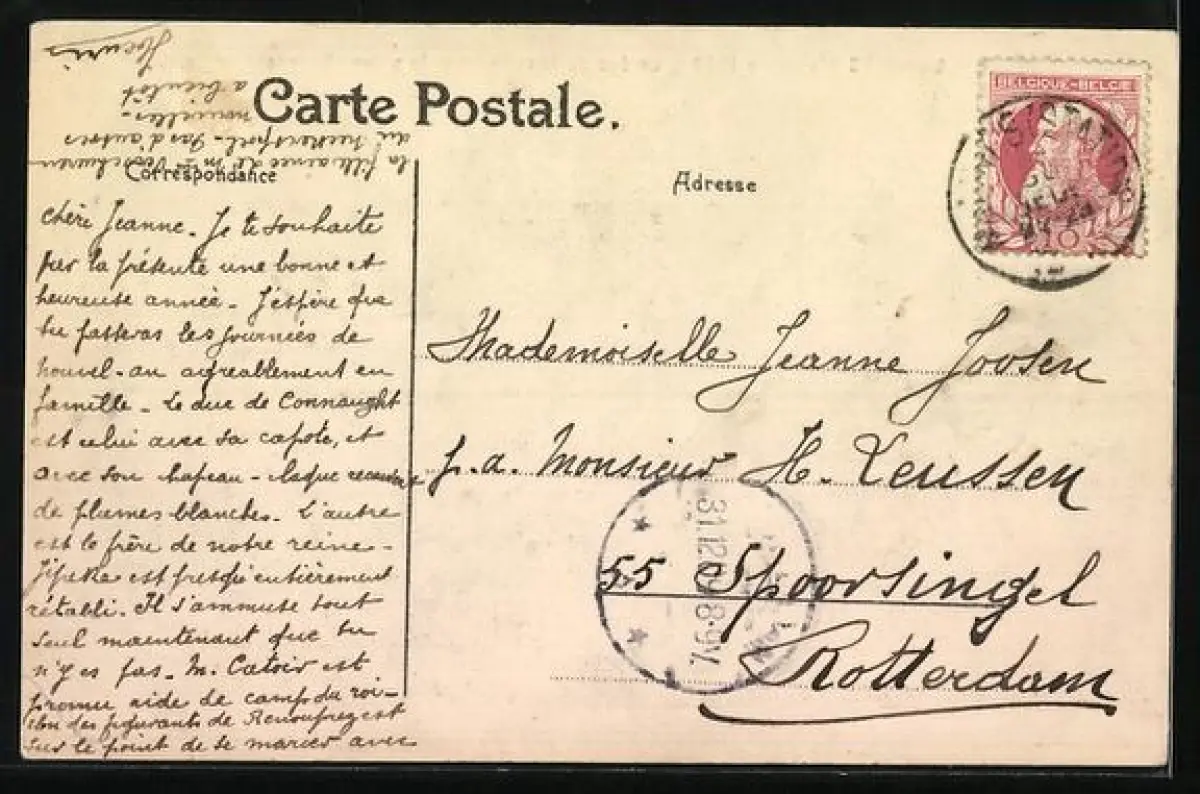 Carte Postale.
Correspondance
Adresse
BELGIQUE-BELGIË
10
chère Jeanne. Je te souhaite
par la présente une bonne et
heureuse année - J'éspère que
tu passeras les journées de
nouvel-an agréablement en
famille - Le duc de Connaught
est celui avec sa capote, et
avec son chapeau - claque
de plumes blanches. L'autre
est le frère de notre reine -
est presqu'entièrement
rétabli. Il s'ammuse tout
seul maintenant que tu
n'y es pas. M. Catoir est
promu aide de camp du roi -
des figurants de est
sur le point de se marier avec
la fille ainée de
du - Pas d'autres
nouvelles -
a bientôt
Mademoiselle Jeanne Joosen
p.a. Monsieur H. Leussen
55 Spoorsingel
Rotterdam
31.12 8-9V.